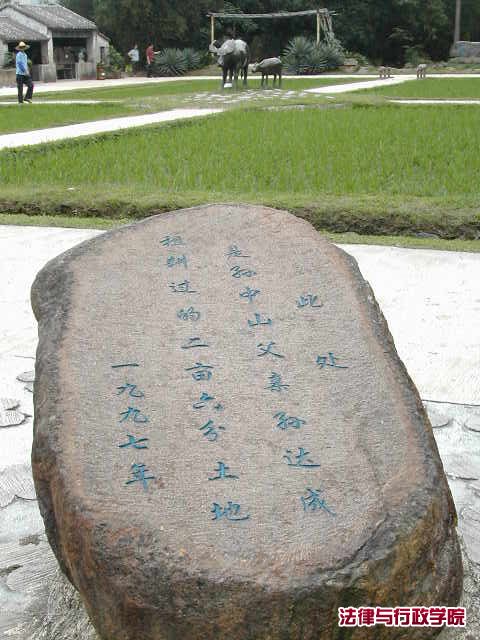 此处
是孙中山父亲孙达成
租耕过的二亩六分土地
一九九七年
法律与行政学院